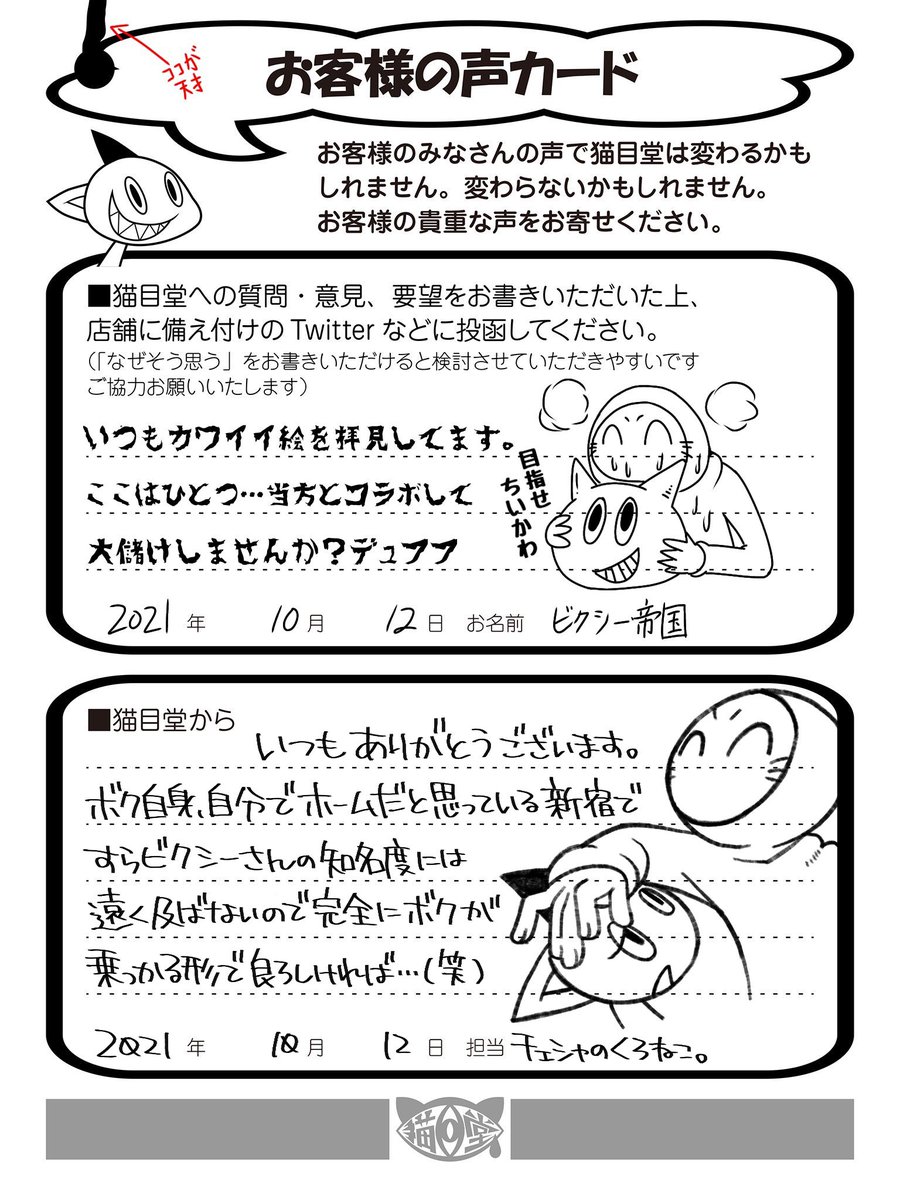 ココが
天才
お客様の声カード
お客様のみなさんの声で猫目堂は変わるかも
しれません。変わらないかもしれません。
お客様の貴重な声をお寄せください。
■猫目堂への質問・意見、要望をお書きいただいた上、
店舗に備え付けの Twitter などに投函してください。
（「なぜそう思う」をお書きいただけると検討させていただきやすいです
ご協力お願いいたします）
いつもカワイイ絵を拝見してます。
ここはひとつ…当方とコラボして
大儲けしませんか？デュフフ
目指せ
ちいかわ
2021 年 10 月 12 日 お名前 ビクシー帝国
■猫目堂から
いつもありがとうございます。
ボク自身、自分でホームだと思っている新宿で
すらビクシーさんの知名度には
遠く及ばないので完全にボクが
乗っかる形で良ろしければ…（笑）
2021 年 10 月 12 日 担当 チェシャのくろねこ。
猫目堂